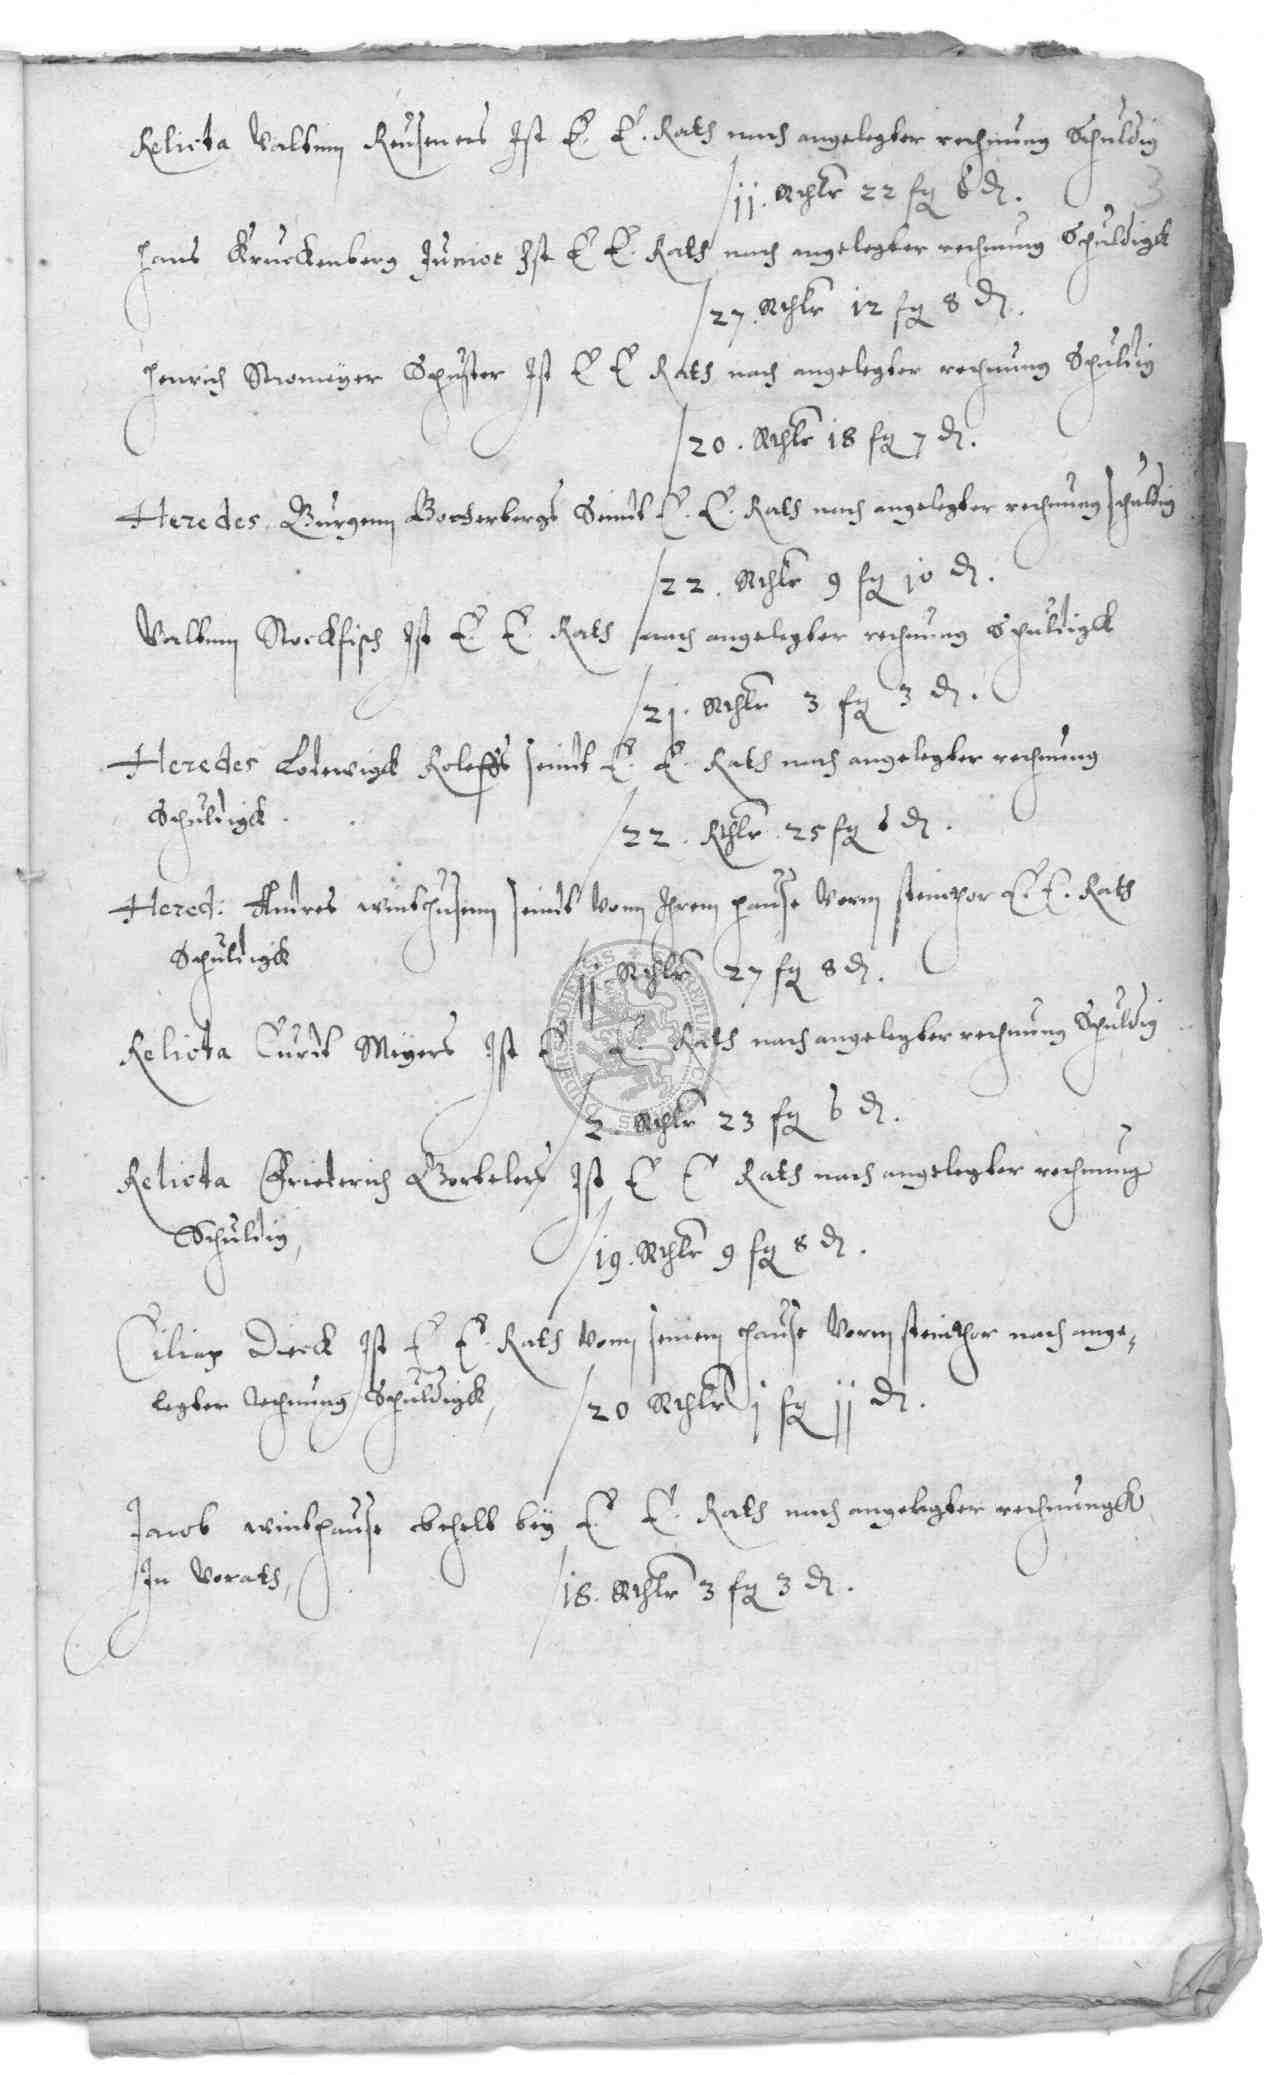 Relicta Valtinn Reuseners Ist E. E. Rath nach angelegter rechnung Schuldig
3
11. Rthlr 22 fg 6 d.
Hans Kruckenberg Junior Ist E E. Rath nach angelegter rechnung Schuldigk
27. Rthlr 12 fg 8 d.
Henrich Stromeyer Schuster Ist E E Rath nach angelegter rechnung Schuldig
20. Rthlr 18 fg 7 d.
Heredes Bocterbergs Seindt E. E. Rath nach angelegter rechnung schuldig
22. Rthlr 9 fg 10 d.
Valtinn Stockfisch Ist E. E. Rath nach angelegter rechnung Schuldigk
21. Rthlr 3 fg 3 d.
Heredes Lodewigk Roleffs seindt E. E. Rath nach angelegter rechnung
Schuldigk.
22. Rthlr 25 fg 6 d.
Hered: Andres windthusenn seindt vonn Ihrem hause vorm steinthor E. E. Rath
Schuldigk
11. Rthlr 27 fg 8 d.
Relicta Curdt Meyers Ist E E. Rath nach angelegter rechnung Schuldig
2. Rthlr 23 fg 6 d.
Relicta Friederich Ist E E Rath nach angelegter rechnung
Schuldig,
19. Rthlr 9 fg 8 d.
Ciliax Dieck Ist E E. Rath vonn seinem hause vorm steinthor nach ange-
legter rechnung Schuldigk,
20 Rthlr 1 fg 11 d.
Jacob windthause behelt bey E. E. Rath nach angelegter rechnungk
In vorath,
18. Rthlr 3 fg 3 d.